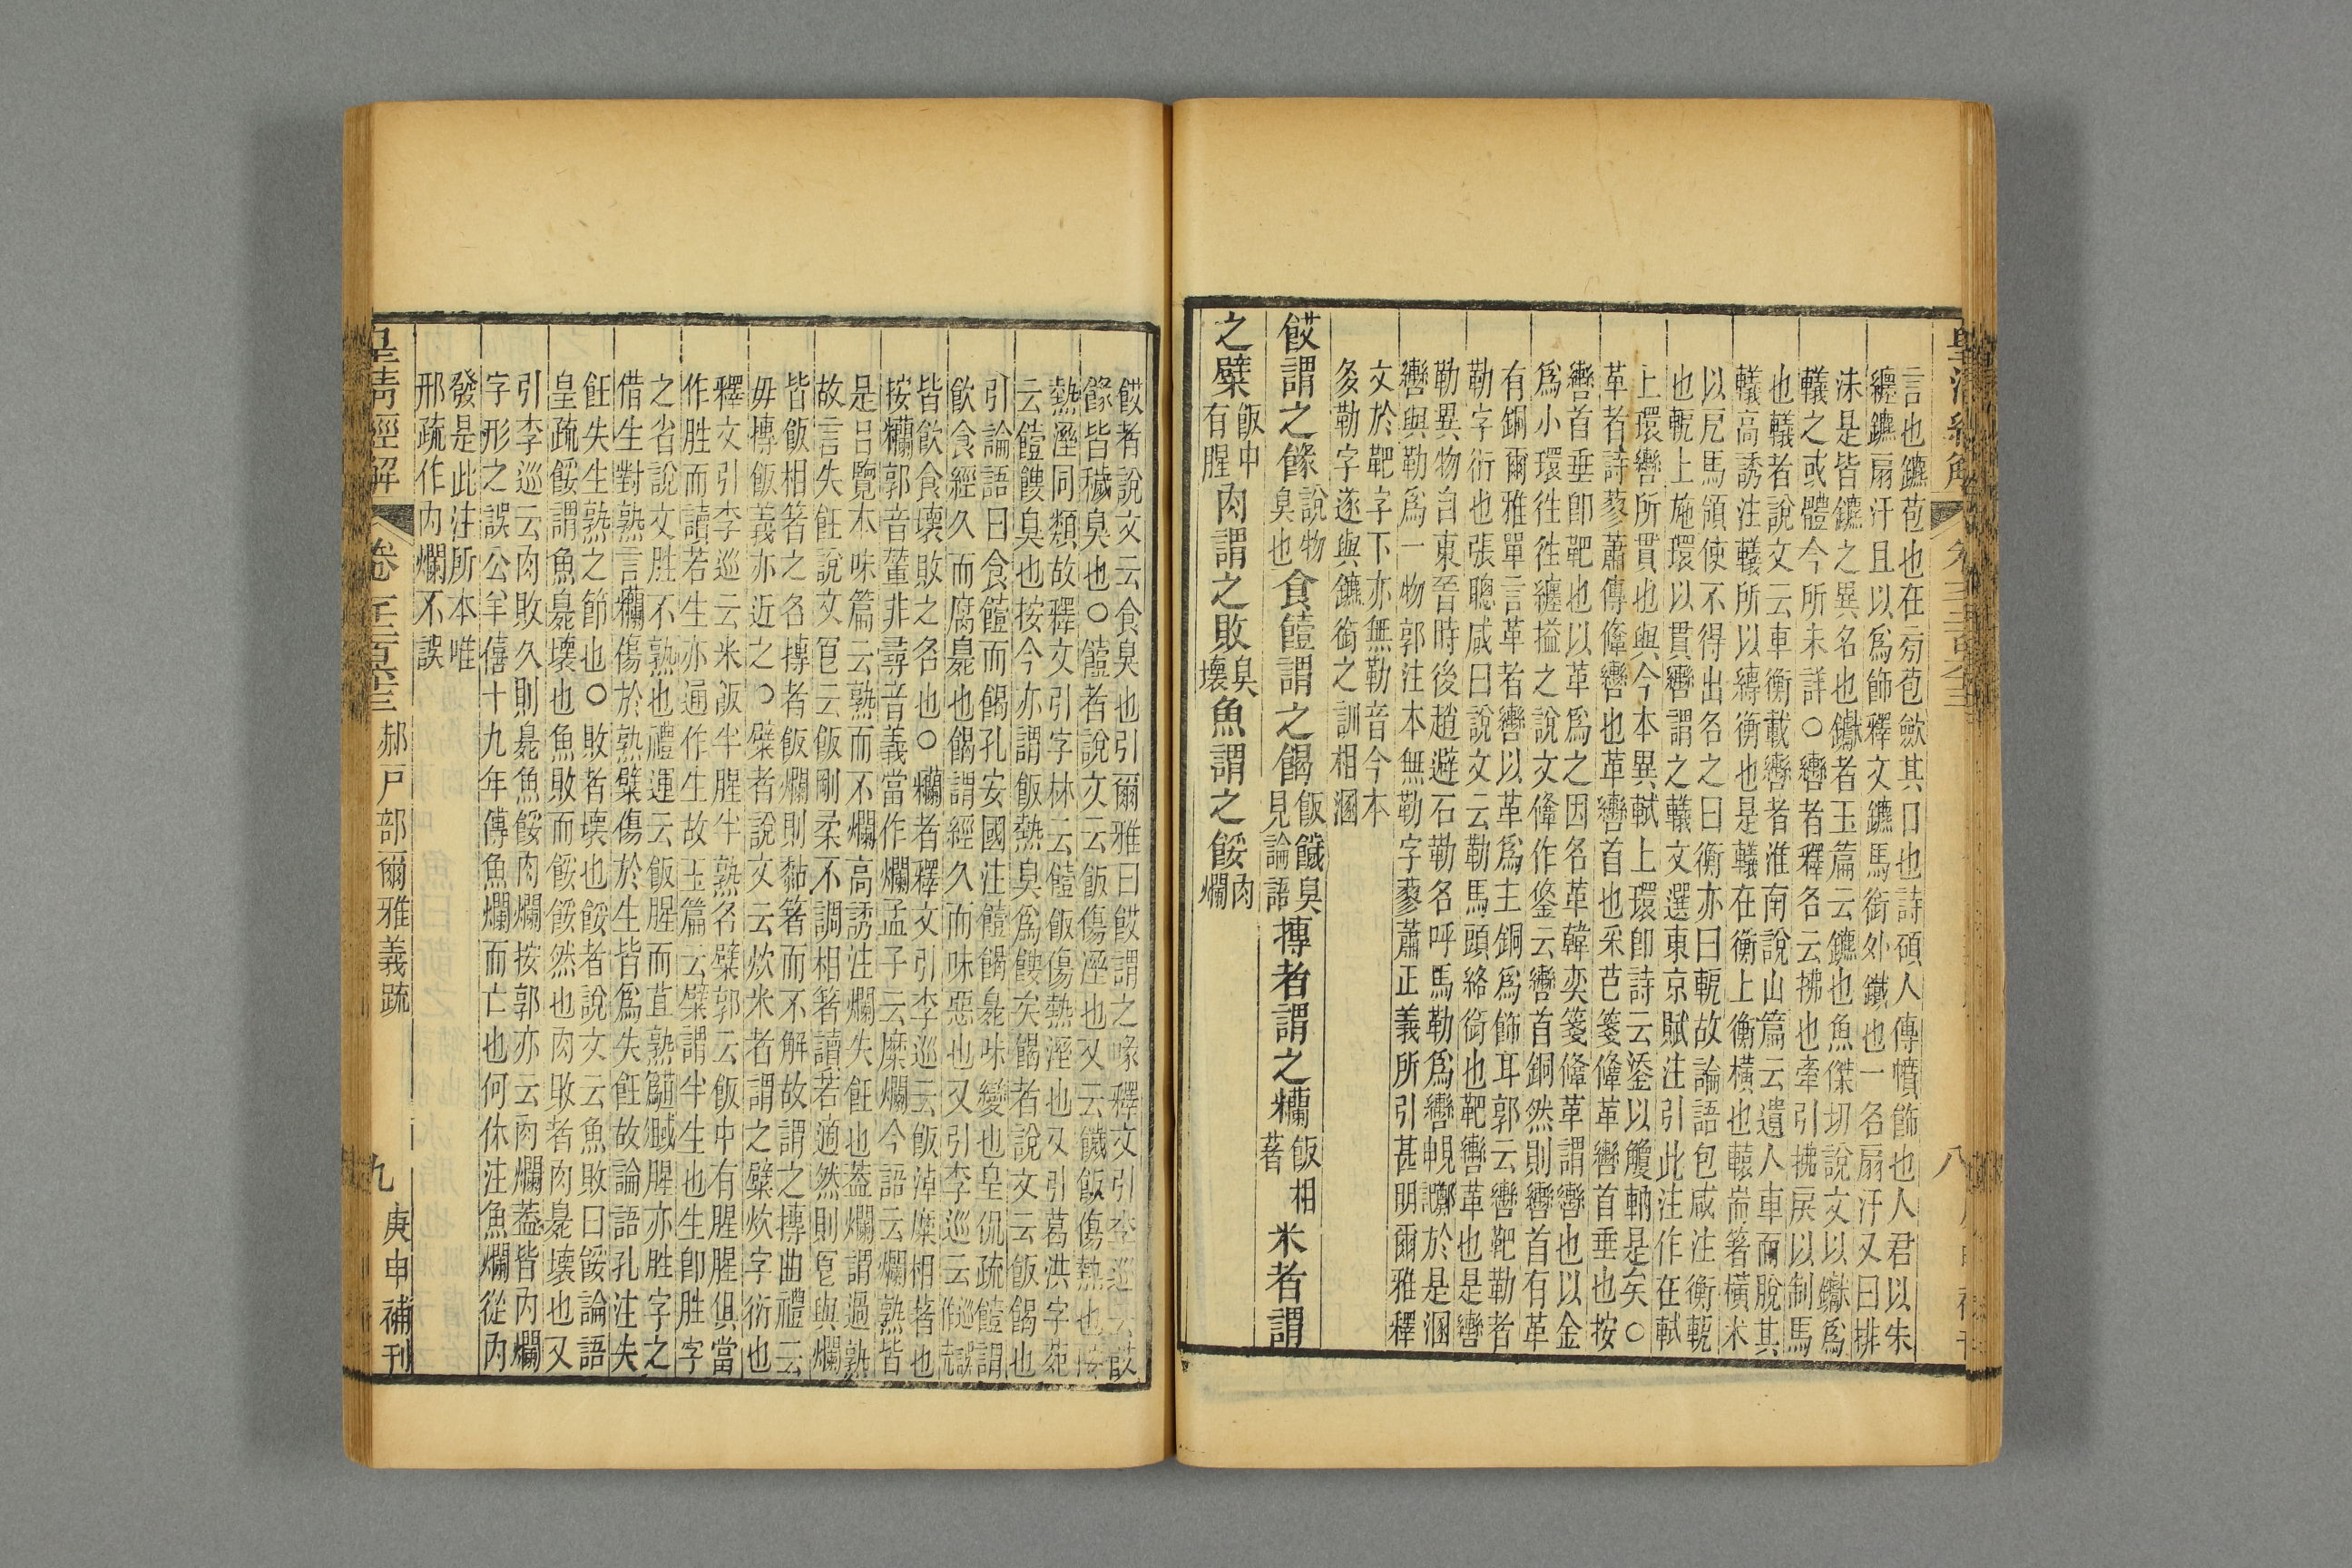 言也鑣苞也在旁苞斂其口也詩碩人傳幩飾也人君以朱
纏鑣扇汗且以爲飾釋文鑣馬銜外鐵也一名扇汗又曰排
沫是皆鑣之異名也钀者玉篇云鑣也魚傑切說文以钀爲
轙之或體今所未詳○轡者釋名云拂也牽引拂戾以制馬
也轙者說文云車衡載轡者淮南說山篇云遺人車而脫其
轙高誘注轙所以縛衡也是轙在衡上衡橫也轅耑箸橫木
以戹馬領使不得出名之曰衡亦曰軶故論語包咸注衡軶
也軶上施環以貫轡謂之轙文選東京賦注引此注作在軾
上環轡所貫也與今本異軾上環卽詩云鋈以觼軜是矣○
革者詩蓼蕭傳鞗轡也革轡首也采芑箋鞗革轡首垂也按
轡首垂卽靶也以革爲之因名革韓奕箋鞗革謂轡也以金
爲小環往往纏搤之說文鞗作鋚云轡首銅然則轡首有革
有銅爾雅單言革者轡以革爲主銅爲飾耳郭云轡靶勒者
勒字衍也張聰咸曰說文云勒馬頭絡銜也靶轡革也是轡
勒異物自東晉時後趙避石勒名呼馬勒爲轡㡌讕於是溷
轡與勒爲一物郭注本無勒字蓼蕭正義所引甚明爾雅釋
文於靶字下亦無勒音今本
多勒字遂與鑣銜之訓相溷
餀謂之餯說物臭也食饐謂之餲飯饖臭見論語摶者謂之糷飯相著米者謂
之糪飯中有腥肉謂之敗臭壞魚謂之餒肉爛
皇清經解 卷 郝戶部爾雅義疏 九 庚申補刊
餀者說文云食臭也引爾雅曰餀謂之喙釋文引李巡云餀
餯皆穢臭也○饐者說文云飯傷溼也又云饖飯傷熱也按
熱溼同類故釋文引字林云饐飯傷熱溼也又引葛洪字苑
云饐餿臭也按今亦謂飯熱臭爲餿矣餲者說文云飯餲也
引論語曰食饐而餲孔安國注饐餲臭味變也皇侃疏饐謂
飲食經久而腐臭也餲謂經久而味惡也又引李巡云
皆飲食壞敗之名也○糷者釋文引李巡云飯淖糜相著也
按糷郭音輦非尋音義當作爛孟子云糜爛今語云爛熟皆
是呂覽本味篇云熟而不爛高誘注爛失飪也蓋爛謂過熟
故言失飪說文䭆云飯剛柔不調相箸讀若適然則䭆與爛
皆飯相箸之名摶者飯爛則黏箸而不解故謂之摶曲禮云
毋摶飯義亦近之○糪者說文云炊米者謂之糪炊字衍也
釋文引李巡云米飯半腥半熟名糪郭云飯中有腥腥俱當
作胜而讀若生亦通作生故玉篇云糪謂半生也生卽胜字
之省說文胜不熟也禮運云飯腥而苴熟鄭腥亦胜字之
借生對熟言糷傷於熟糪傷於生皆爲失飪故論語孔注失
飪失生熟之節也○敗者壞也餒者說文云魚敗曰餒論語
皇疏餒謂魚臭壞也魚敗而餒餒然也肉敗者肉臭壞也又
引李巡云肉敗久則臭魚餒肉爛按郭亦云肉爛蓋皆內爛
字形之誤公羊僖十九年傳魚爛而亡也何休注魚爛從內
發是此注所本唯
邢疏作內爛不誤